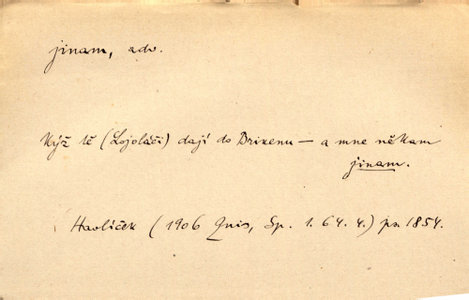 jinam, adv.
Kýž tě (Lojoláči) dají do Brixenu — a mne někam
jinam.
Havlíček (1906 Quis, Sp. 1. 64. 4.)ps. 1854.